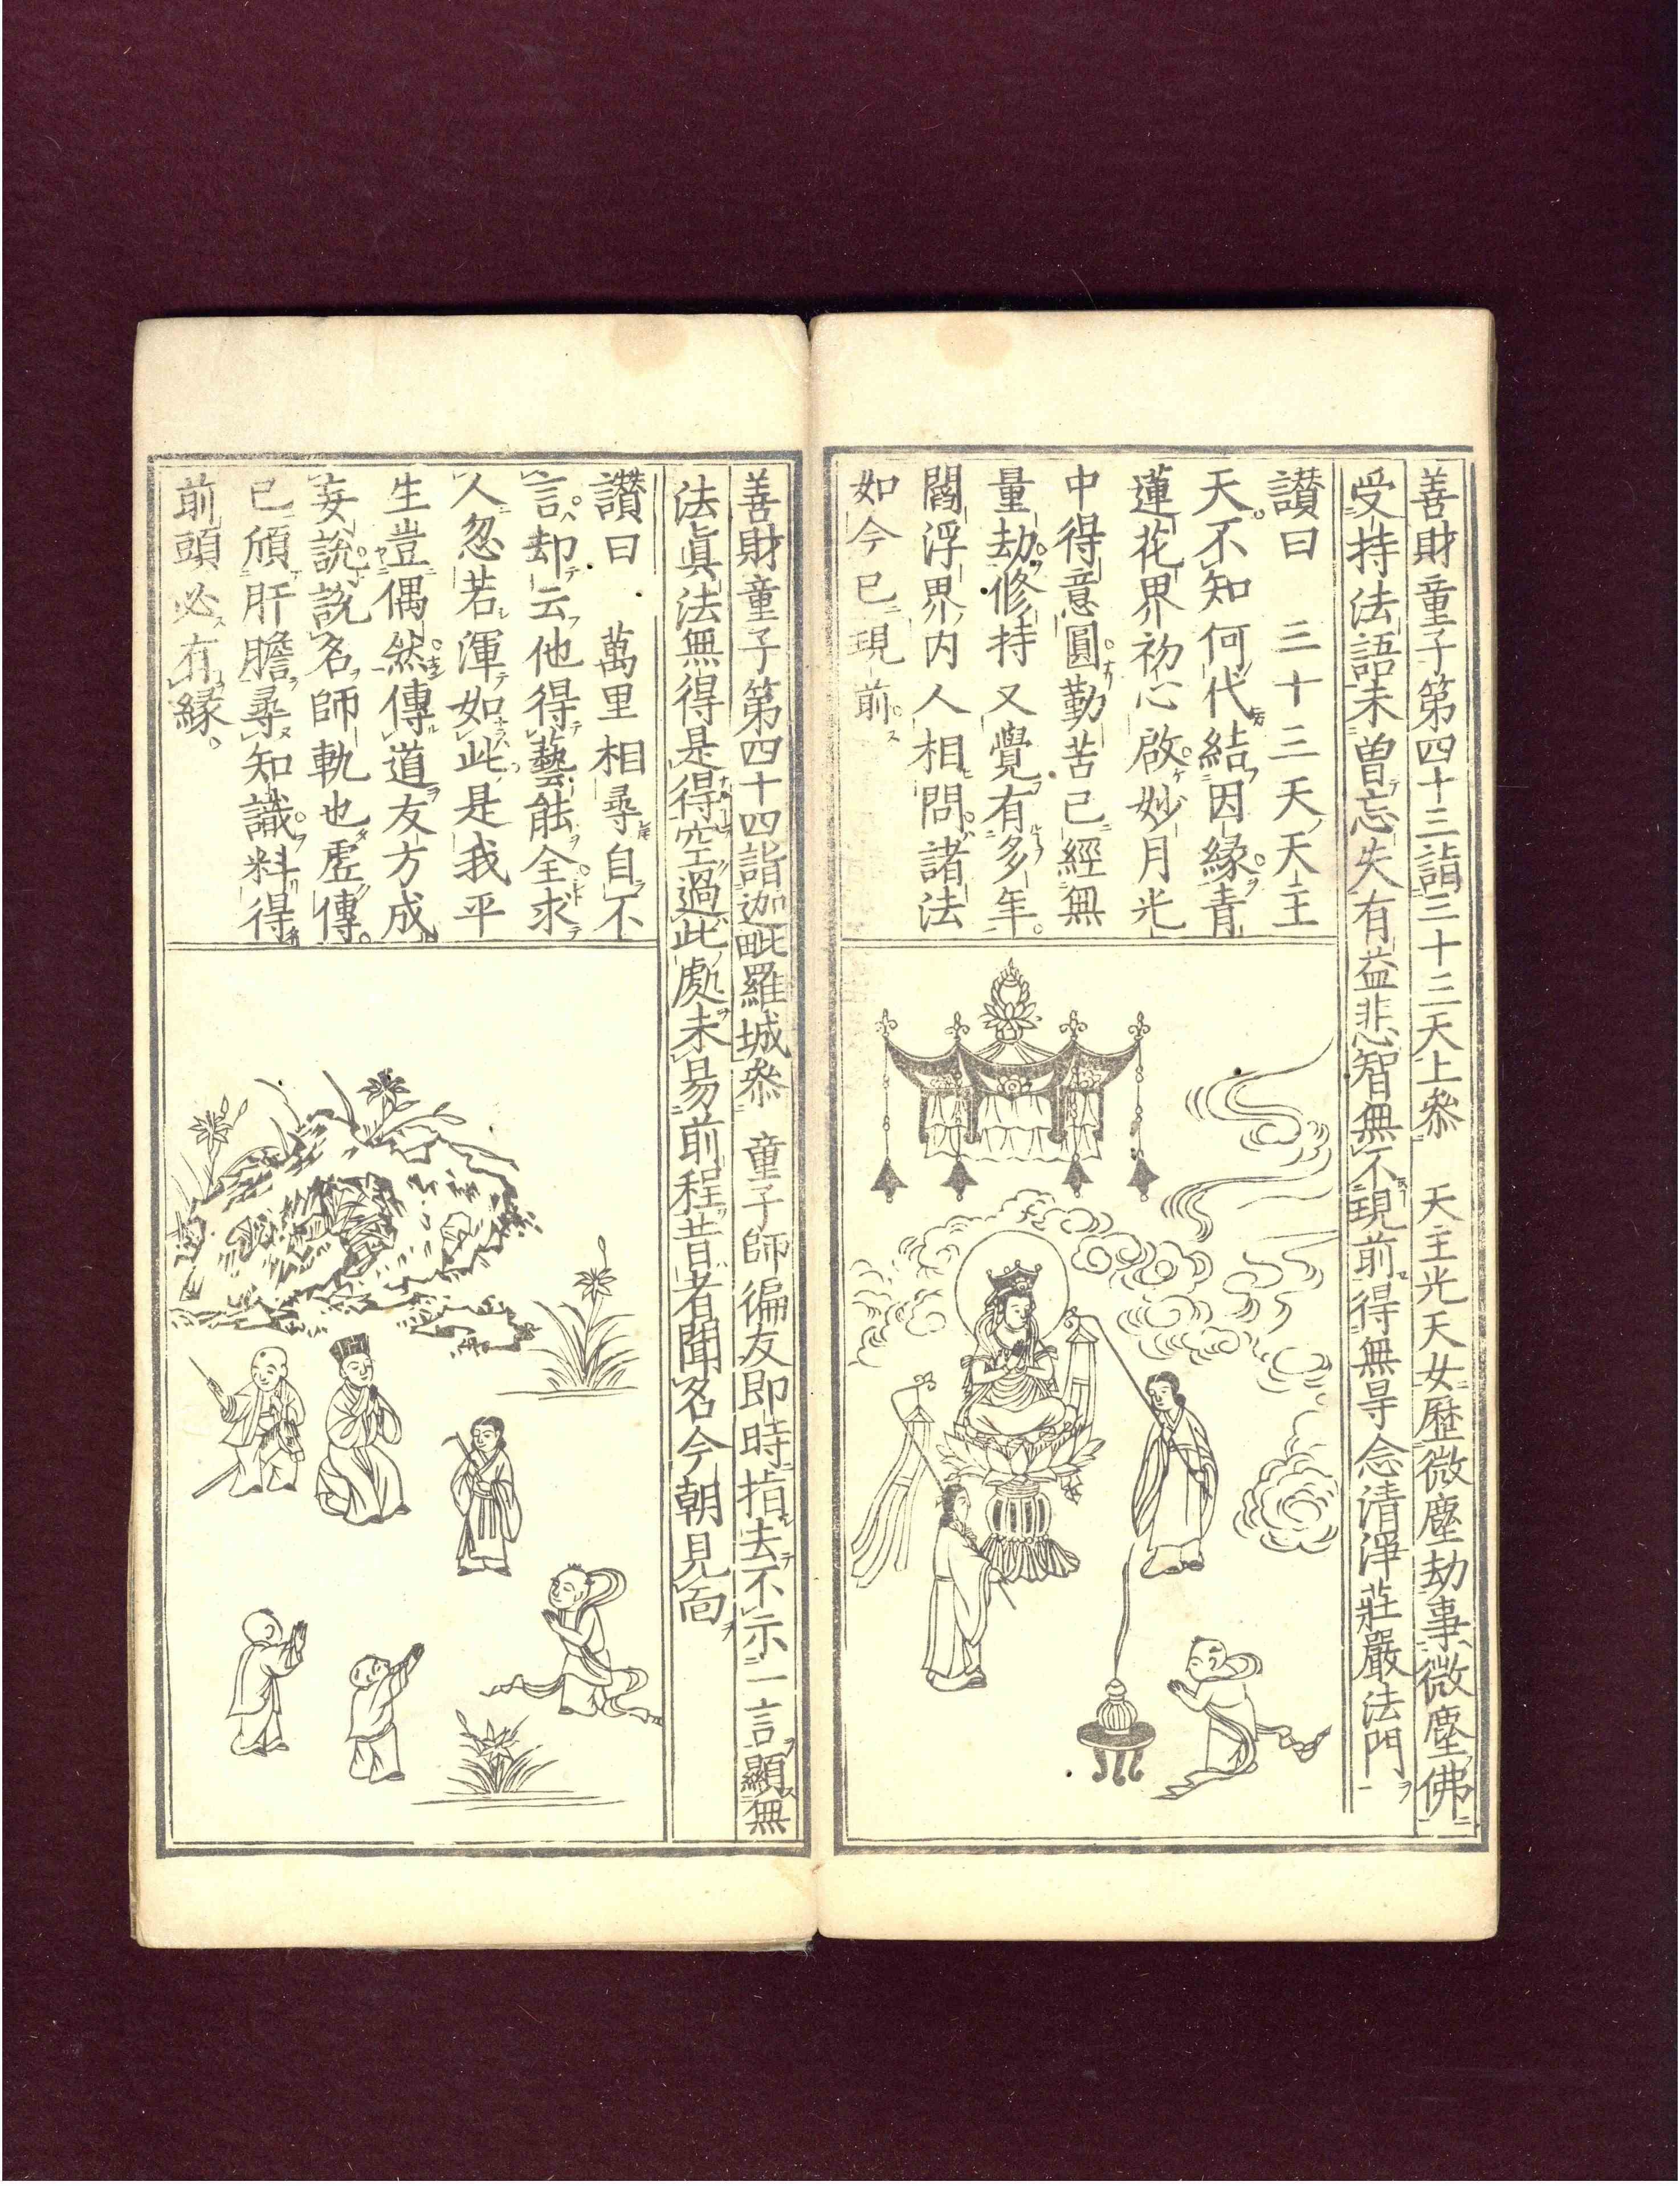 善財童子第四十三詣三十三天上叅　天主光天女歷微塵劫事微塵佛
受持法語未曽忘失有益悲智無不現前得無㝵念清淨莊嚴法門
讃曰　三十三天天主
天不知何代結因縁青
蓮花界初心啟妙月光
中得意圓勤苦已經無
量劫修持又覺有多年
閻浮界内人相問諸法
如今已現前
善財童子第四十四詣迦毗羅城叅　童子師徧友即時指去不示一言顯無
法眞法無得是得空過此處未易前程昔者聞名今朝見面
讚曰　萬里相尋自不
言却云他得藝能全求
人忽若渾如此是我平
生豈偶然傳道友方成
妄説説名師軌也虚傳
已傾肝膽尋知識料得
前頭必有縁